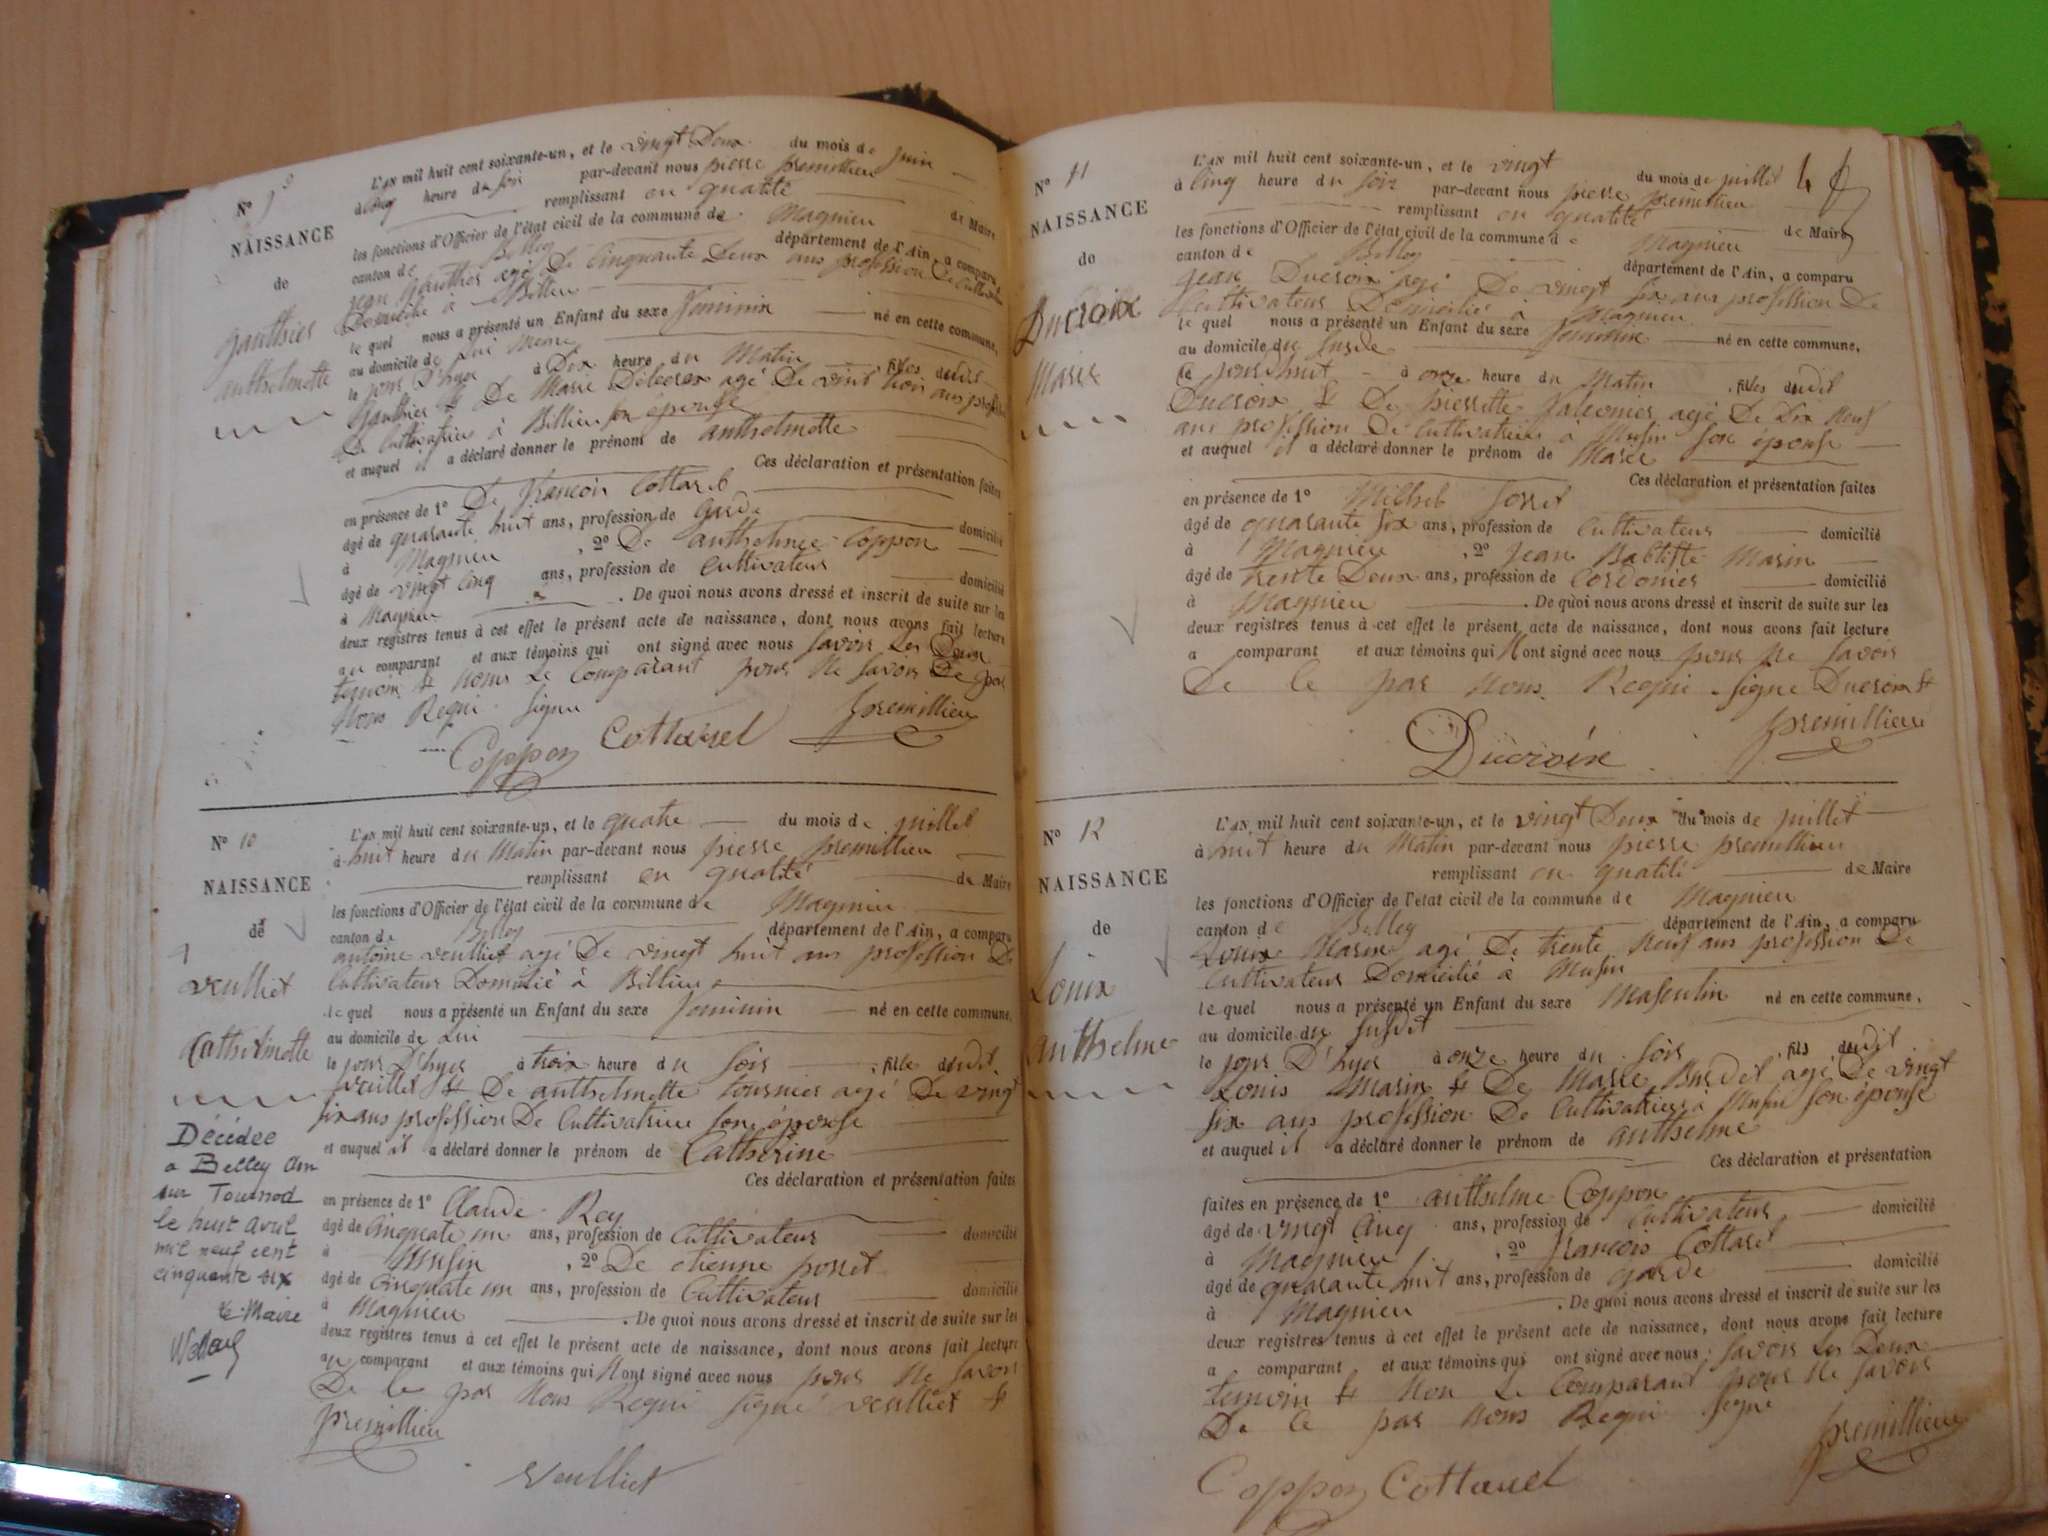 N° 9
NAISSANCE
de
gauthier
anthelmette
L'AN mil huit cent soixante-un, et le vingt Deux du mois de juin
à cinq heure du soir par-devant nous pierre premillieu
remplissant en qualité de Maire
les fonctions d'Officier de l'état civil de la commune de Magnieu
canton de Belley département de l'Ain, a comparu
jean gauthier agé De Cinquante Deux ans profession De Cultivateur
Domicilié à Billieu
le quel nous a présenté un Enfant du sexe feminin né en cette commune,
au domicile de Lui meme
le jour D'hyer à Dix heure du Matin filles dudit
gauthier & De Marie agé De vint huit ans
De Cultivatrice à Billieu son épouse
et auquel il a déclaré donner le prénom de anthelmette
Ces déclaration et présentation faites
en présence de 1° De françois Cottarel
âgé de quarante huit ans, profession de garde domicilié
à Magnieu , 2° De anthelme Coppon
âgé de vingt Cinq ans, profession de Cultivateur domicilié
à Magnieu . De quoi nous avons dressé et inscrit de suite sur les
deux registres tenus à cet effet le présent acte de naissance, dont nous avons fait lecture
au comparant et aux témoins qui ont signé avec nous savoir Les Deux
temoin & nonu Le Comparant pour ne savoir De
Nous Requi Signe
Coppon Cottarel premillieu
N° 10
NAISSANCE
de
veulliet
Catherinette
Décédée
a Belley Ain
sur Tournod
le huit avril
mil neuf cent
cinquante six
Le Maire
L'AN mil huit cent soixante-un, et le quatre du mois de juillet
à huit heure du Matin par-devant nous pierre premillieu
remplissant en qualité de Maire
les fonctions d'Officier de l'état civil de la commune de Magnieu
canton de Belley département de l'Ain, a comparu
antoine veulliet agé De vingt huit ans profession De
Cultivateur Domicilié à Billieu
le quel nous a présenté un Enfant du sexe feminin né en cette commune,
au domicile de Lui
le jour D'hyer à trois heure du soir , fille dudit
veuillet & De anthelmette tournier agé De vingt
six ans profession De Cultivatrice son épouse
et auquel il a déclaré donner le prénom de Catherine
Ces déclaration et présentation faites
en présence de 1° Claude Rey
âgé de Cinquate un ans, profession de Cultivateur domicilié
à Musin , 2° De etienne porret
âgé de Cinquate un ans, profession de Cultivateur domicilié
à Magnieu . De quoi nous avons dressé et inscrit de suite sur les
deux registres tenus à cet effet le présent acte de naissance, dont nous avons fait lecture
au comparant et aux témoins qui Nont signé avec nous pour ne savoir
De le par Nous Requi signe veulliet &
premillieu
Veulliet
N° 11
NAISSANCE
de
Ducroix
Marie
L'AN mil huit cent soixante-un, et le vingt du mois de juillet
à Cinq heure du soir par-devant nous pierre premillieu
remplissant en qualité de Maire
les fonctions d'Officier de l'état civil de la commune de Magnieu
canton de Belley département de l'Ain, a comparu
jean Ducroix agé De vingt six ans profession De
Cultivateur Domicilié à Magnieu
le quel nous a présenté un Enfant du sexe feminin né en cette commune,
au domicile du susde
le jourd'huit à onze heure du Matin , filles dudit
Ducroix & De pierrette falconier agé De Dix Neuf
ans profession De Cultivatrice à Musin son épouse
et auquel il a déclaré donner le prénom de Marie
Ces déclaration et présentation faites
en présence de 1°
âgé de quarante six ans, profession de Cultivateur domicilié
à Magnieu , 2° jean Babtiste Marin
âgé de trente Deux ans, profession de Cordonier domicilié
à Magnieu . De quoi nous avons dressé et inscrit de suite sur les
deux registres tenus à cet effet le présent acte de naissance, dont nous avons fait lecture
a comparant et aux témoins qui Nont signé avec nous pour ne savoir
De le par Nous Requi signe Ducroix &
premillieu
Ducroix
N° 12
NAISSANCE
de
Louix
anthelme
L'AN mil huit cent soixante-un, et le vingt Deux du mois de juillet
à huit heure du Matin par-devant nous pierre premillieu
remplissant en qualité de Maire
les fonctions d'Officier de l'état civil de la commune de Magnieu
canton de Belley département de l'Ain, a comparu
Louix Marin agé De trente Neuf ans profession De
Cultivateur Domicilié a Musin
le quel nous a présenté un Enfant du sexe Masculin né en cette commune,
au domicile du susdit
le jour D'hyer à onze heure du soir , fils dudit
Louis Marin & De Marie Burdet agé De vingt
six ans profession De Cultivatrice à Musin son épouse
et auquel il a déclaré donner le prénom de anthelme
Ces déclaration et présentation
faites en présence de 1° anthelme Coppon
âgé de vingt Cinq ans, profession de Cultivateur domicilié
à Magnieu , 2° françois Cottarel
âgé de quarante huit ans, profession de garde domicilié
à Magnieu . De quoi nous avons dressé et inscrit de suite sur les
deux registres tenus à cet effet le présent acte de naissance, dont nous avons fait lecture
a comparant et aux témoins qui ont signé avec nous savoir Les Deux
temoin & Non Le Comparant pour ne savoir
De le par Nous Requi signe
premillieu
Coppon Cottarel